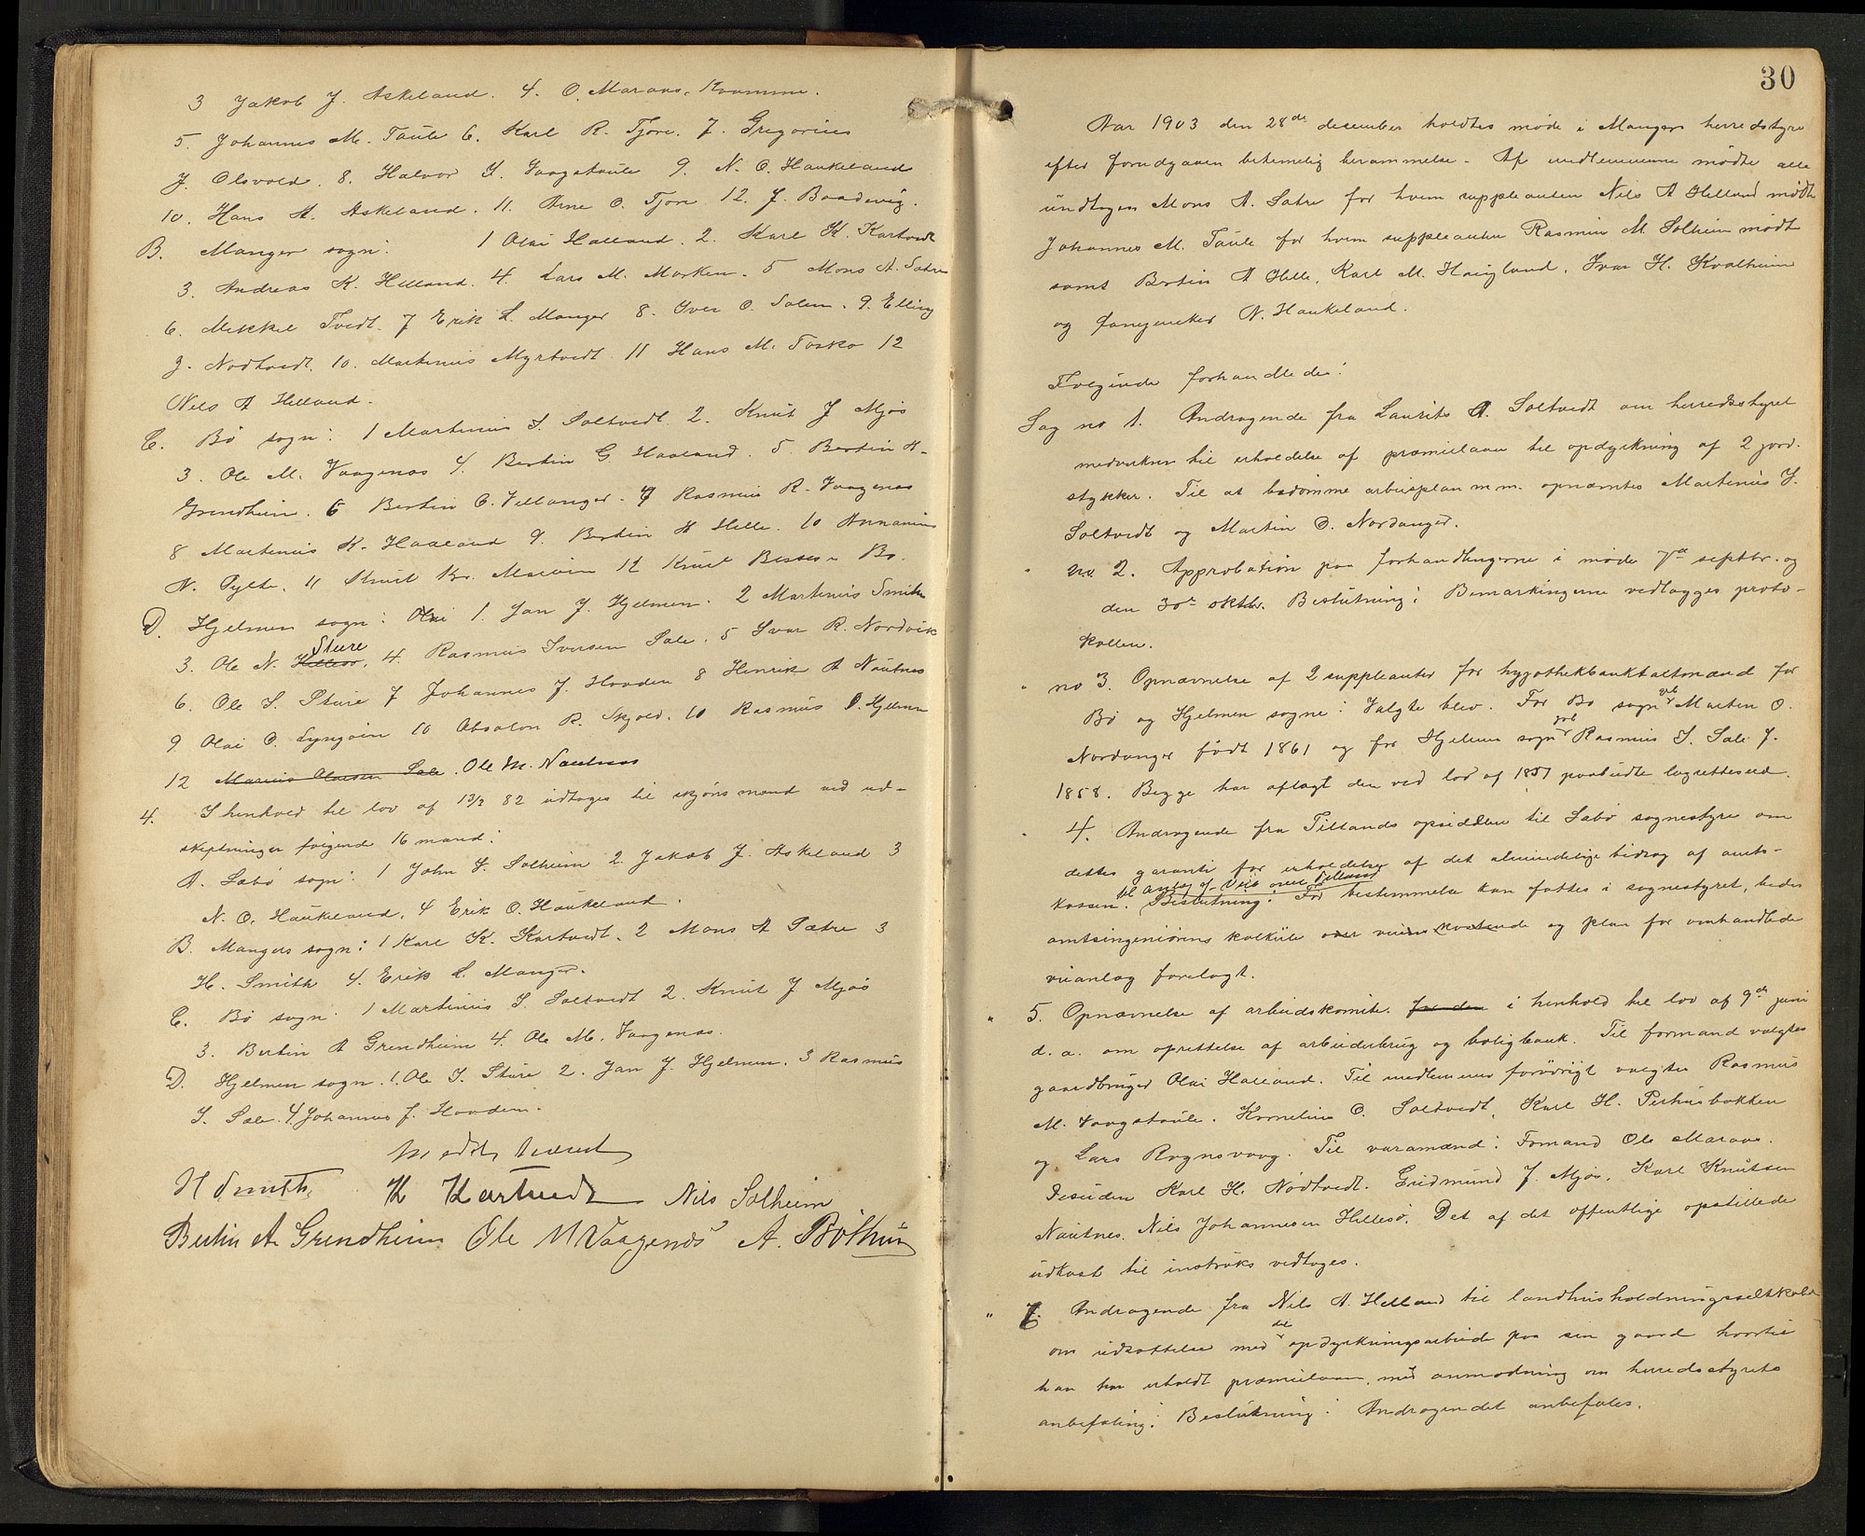 3 Jakob J. Askeland. 4. O. Maraas,
5. Johannes M. Taule 6. Karl R. Tjore. 7. Gregorius
J. Olsvold. 8. Halvor J. Vaagstaule 9. N. O. Haukeland
10. Hans A. Askeland. 11. Arne O. Tjore 12. J. Baadsvig.
B. Manger sogn: 1 Olai Halland. 2. Karl K. Kartvedt
3. Andreas K. Helland. 4. Lars M. Marken. 5 Mons A. Sætre
6. Mikkel Tvedt. 7 Erik L. Manger 8. Iver O. Solem. 9. Elling
J. Nodtvedt. 10. Martinus Myrtvedt 11 Hans M. Toska 12
Nils A Helland.
C. Bø sogn: 1 Martinus S. Soltvedt 2. Knut J Mjøs
3. Ole M. Vaagenæs 4. Bertin G. Haaland. 5. Bertin A.
Grindheim. 6 Bertin O. Vellanger. 7 Rasmus R. Vaagenæs
8 Martinus K. Haaland 9. Bertin A Helle. 10 Annanias
N. Pylte. 11 Knut Kr. 12 Knut Bø.
D. Hjelmen sogn: 1. Jan J. Hjelmen. 2 Martinus Smith
3. Ole N. Hellesø Sture, 4. Rasmus Iversen Sæle. 5 Ivar R. Nordvik
6. Ole S. Sture 7 Johannes J. Hovden 8 Henrik A Nautnes
9 Olai O. Lyngøin 10 Absalon R. Skjold. 10 Rasmus O. Hjelmen
12 Marius Olaisen Sæle. Ole M. Nautnes
4. I henhold til lov af 13/3 82 udtoges til skjønsmænd ved ud-
skiftninger følgende 16 mænd:
A. Sæbø sogn: 1 John S. Solheim 2. Jakob J. Askeland 3
N. O. Haukeland, 4 Erik O. Haukeland.
B. Mangers sogn: 1 Karl K. Kartvedt. 2 Mons A Sætre 3
H. Smith 4. Erik L. Manger.
C. Bø sogn: 1 Martinus S. Soltvedt 2. Knut J Mjøs
3. Bertin A Grindheim 4. Ole M. Vaagenæs.
D. Hjelmen sogn. 1. Ole S. Sture 2. Jan J. Hjelmen. 3 Rasmus
I. Sæle. 4 Johannes J. Hovden.
Mødet hævet
H Smith. K Kartvedt Nils Solheim
Bertin A. Grendheim Ole M Vaagenæs A. Bøthun
30
Aar 1903 den 28de desember holdtes møde i Mangers herredsstyre
efter forudgaaen betimelig berammelse. Af medlemmerne mødte alle
undtagen Mons A. Sætre for hvem suppleanten Nils A Helland mødte
Johannes M. Taule for hvem suppleanten Rasmus M. Solheim mødte
samt Bertin A Helle, Karl M. Haugland, Ivar H. Kvalheim
og N. Haukeland.
Følgende forhandledes:
Sag no 1. Andragende fra Laurits A. Soltvedt om herredsstyret
medvirken til erholdelse af præmielaan til opdyrkning af 2 jord-
stykker. Til at bedømme arbeisplan m.m. opnævntes Martinus S.
Soltvedt og Martin O. Nordanger.
" no 2. Approbation paa forhandlingerne i møde 7de septbr. og
den 30te oktbr. Beslutning: Bemærkningerne vedlægges proto-
kollen.
" no 3. Opnævnelse af 2 suppleanter for hypothekbanktaktsmænd for
Bø og Hjelmen sogne: Valgte blev. For Bø sogn Martin O.
Nordanger født 1861 og for Hjelmen sogn Rasmus I. Sæle f.
1858. Begge har aflagt den ved lov af 1857 paabudte lagrettesed.
" 4. Andragende fra Tillands opsiddere til Sæbø sognestyre om
dettes garanti for erholdelse af det almindelige bidrag af amts-
kassen til anlæg af vei over Tilland. Beslutning: Før bestemmelse kan fattes i sognestyret, bedes
amtsingeniørens kalkule over veiens kostende og plan for omhandlede
veianlæg forelagt.
" 5. Opnævnelse af arbeidskomite for den i henhold til lov af 9de juni
d. a. om oprettelse af arbeiderbrug og boligbank. Til formand valgtes
gaardbruger Olai Halland. Til medlemmer forøvrigt valgtes Rasmus
M. Vaagstaule. Kornelius O. Soltvedt, Karl H. Perhusbakken
og Lars Rognsvaag. Til varamænd: Formand Ole Maraas.
Desuden Karl H. Nodtvedt. Gudmund J. Mjøs, Karl Knutsen
Nautnes. Nils Johannesen Hillesø. Det af det offentlige opstillede
udkast til instruks vedtoges.
" 6. Andragende fra Nils A. Helland til landhusholdningsselskabet
om udsættelse med det opdyrkningsarbeide paa sin gaard hvortil
han har erholdt præmielaan, med anmodning om herredsstyrets
anbefaling: Beslutning: Andragendet anbefales.